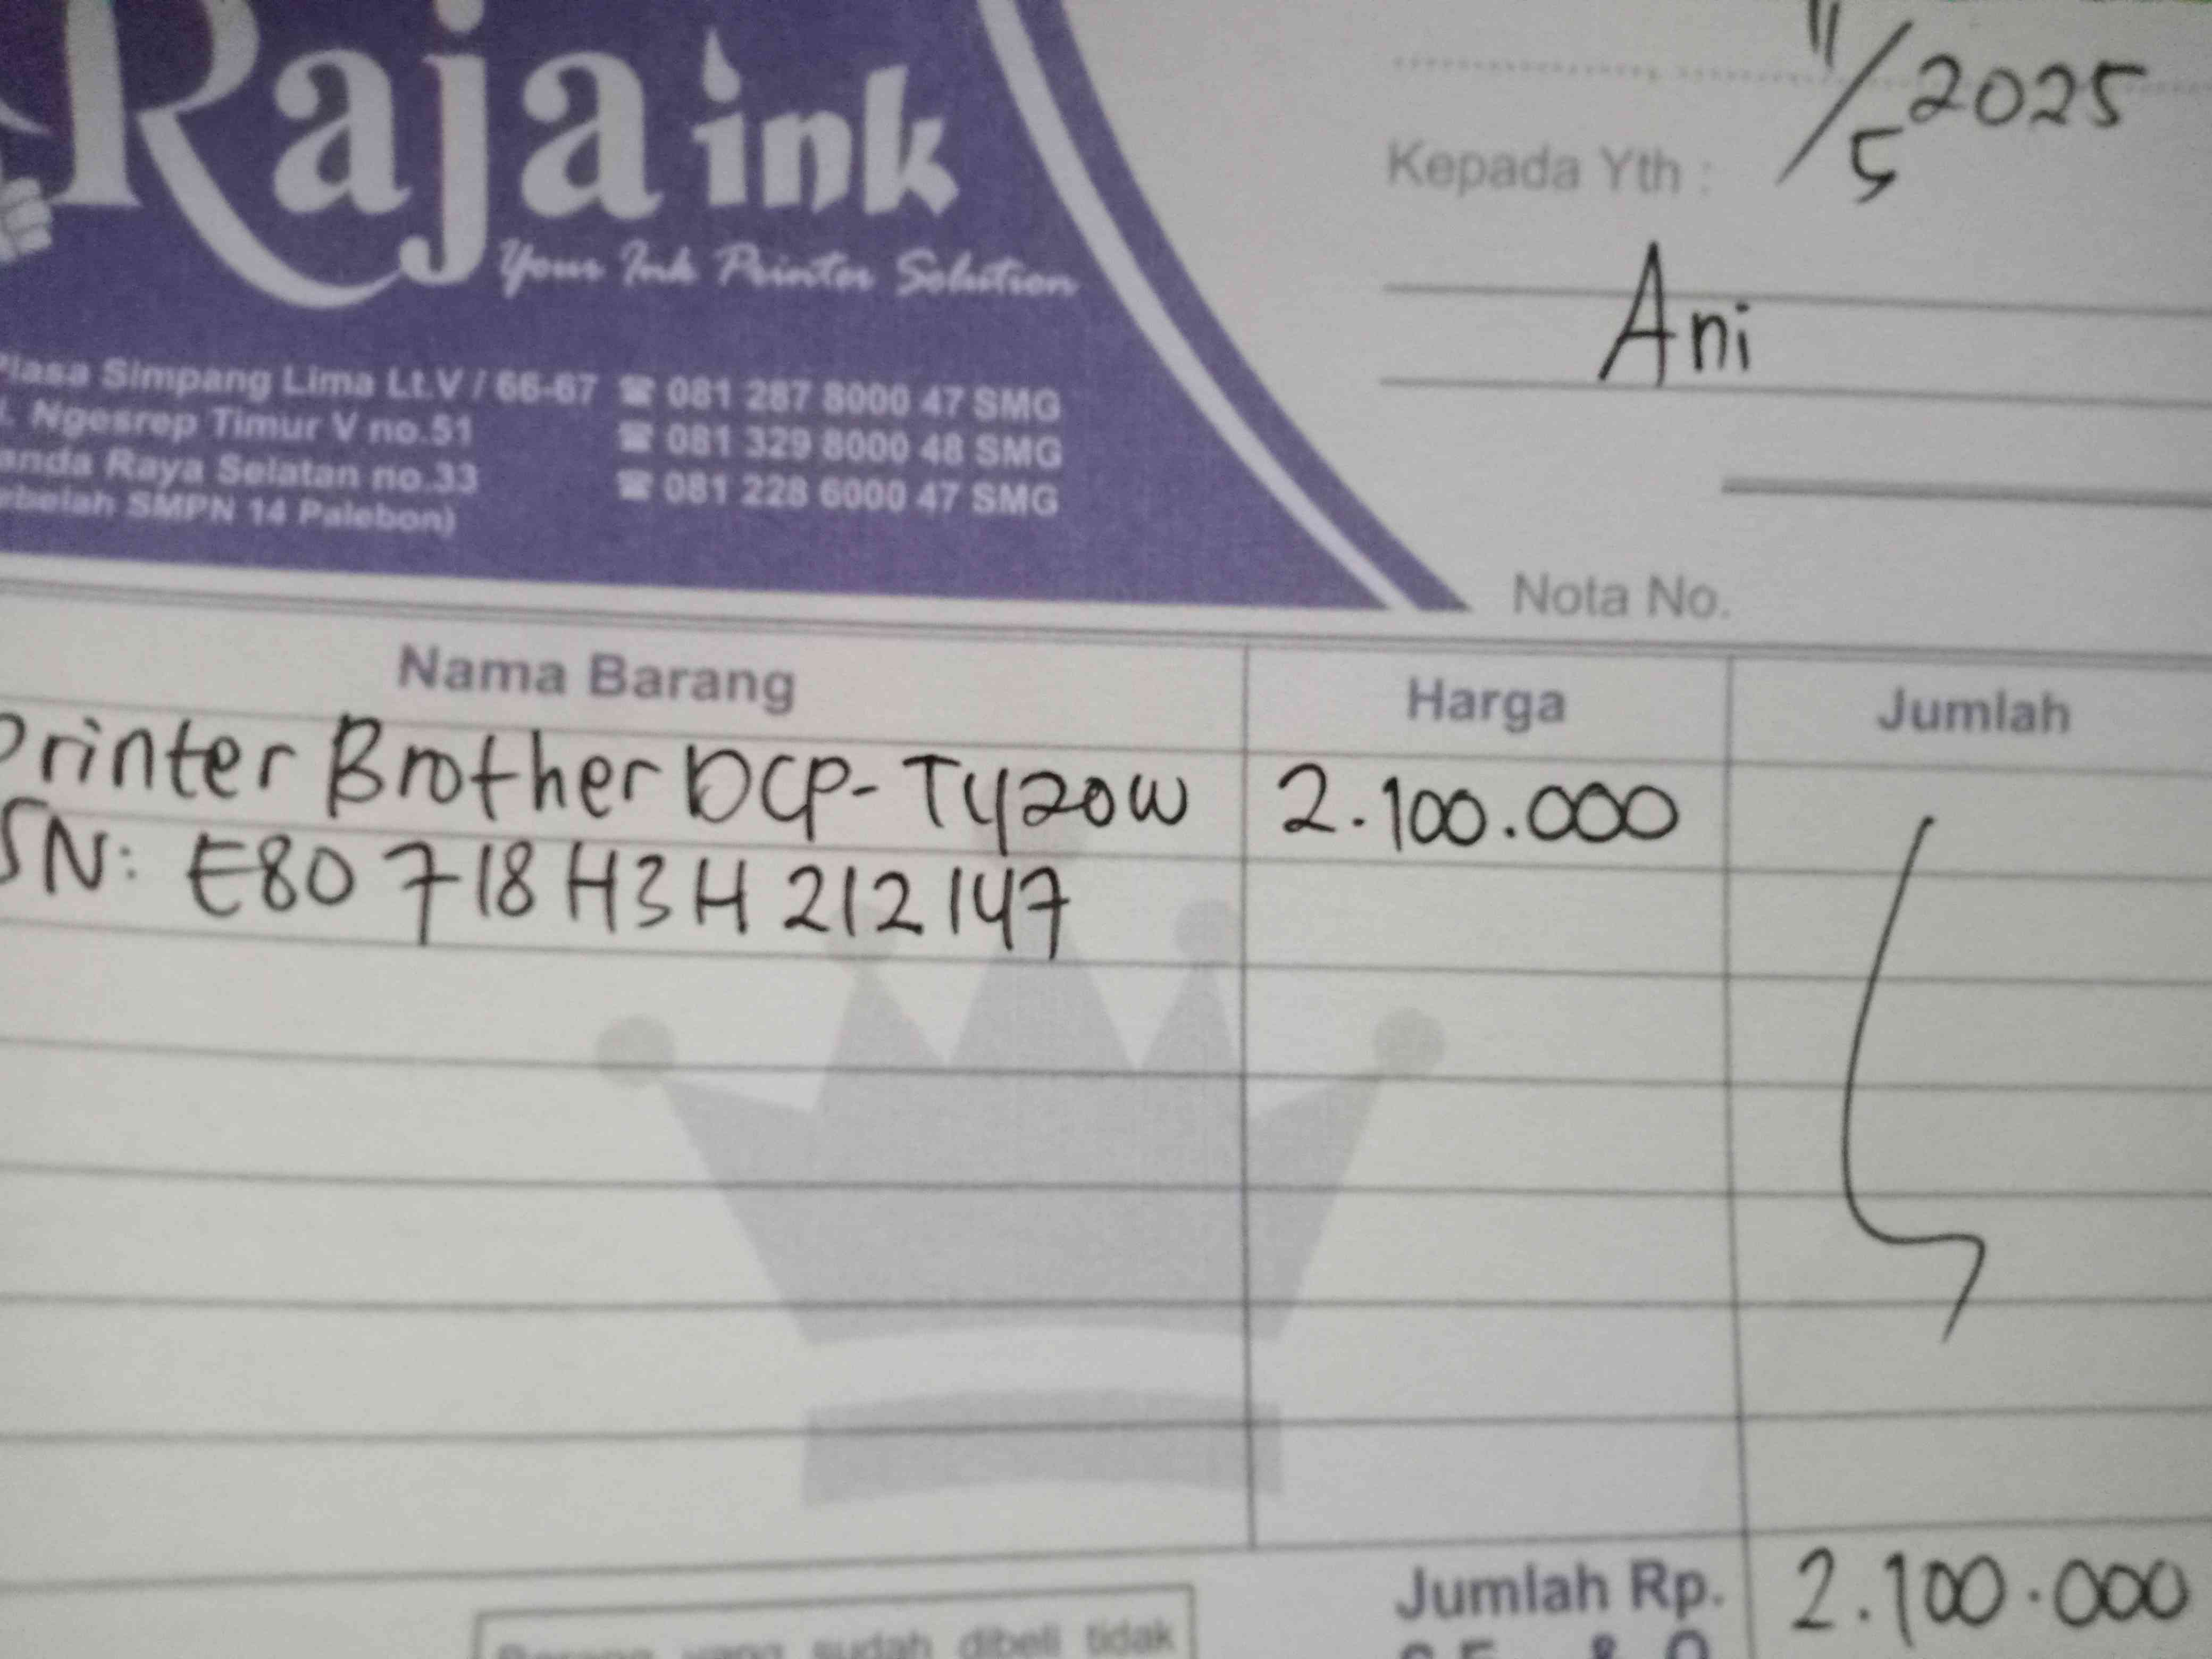 Raja ink
Your Ink Printer Solution
Plasa Simpang Lima Lt.V / 66-67 ☎ 081 287 8000 47 SMG
Ngesrep Timur V no.51 ☎ 081 329 8000 48 SMG
Raya Selatan no.33 ☎ 081 228 6000 47 SMG
SMPN 14 Palebon)
11/5 2025
Kepada Yth :
Ani
Nota No.
Nama Barang Harga Jumlah
Printer Brother DCP-T420W 2.100.000
SN: E80718H3H212147
Jumlah Rp. 2.100.000
Barang yang sudah dibeli tidak